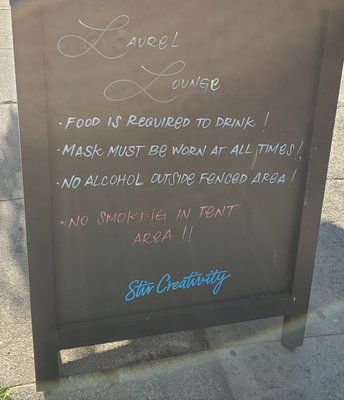 Laurel
Lounge
· FOOD IS REQUIRED TO DRINK!
· MASK MUST BE WORN AT ALL TIMES!
· NO ALCOHOL OUTSIDE FENCED AREA!
· NO SMOKING IN TENT
AREA!!
Stir Creativity